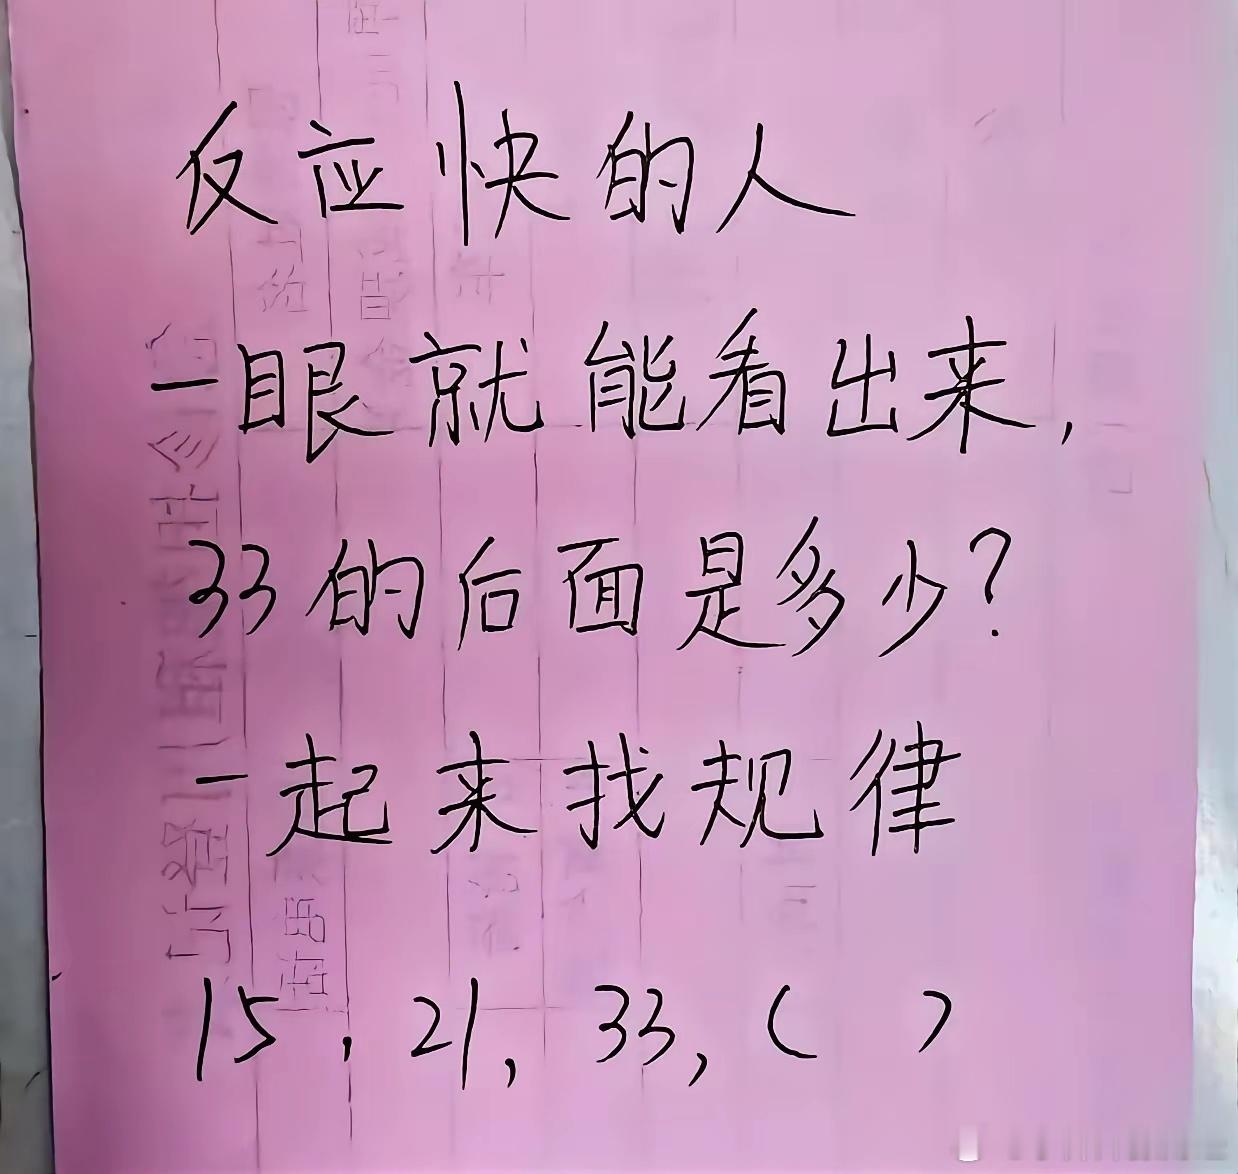 反应快的人
一眼就能看出来,
33的后面是多少?
一起来找规律
15,21,33,( )